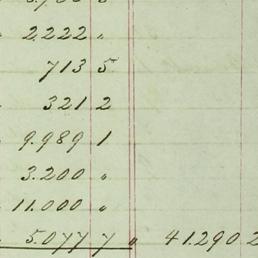 2.222 "
713 5
321 2
9.989 1
3.200 "
11.000 "
5.077 7 " 41.290 2